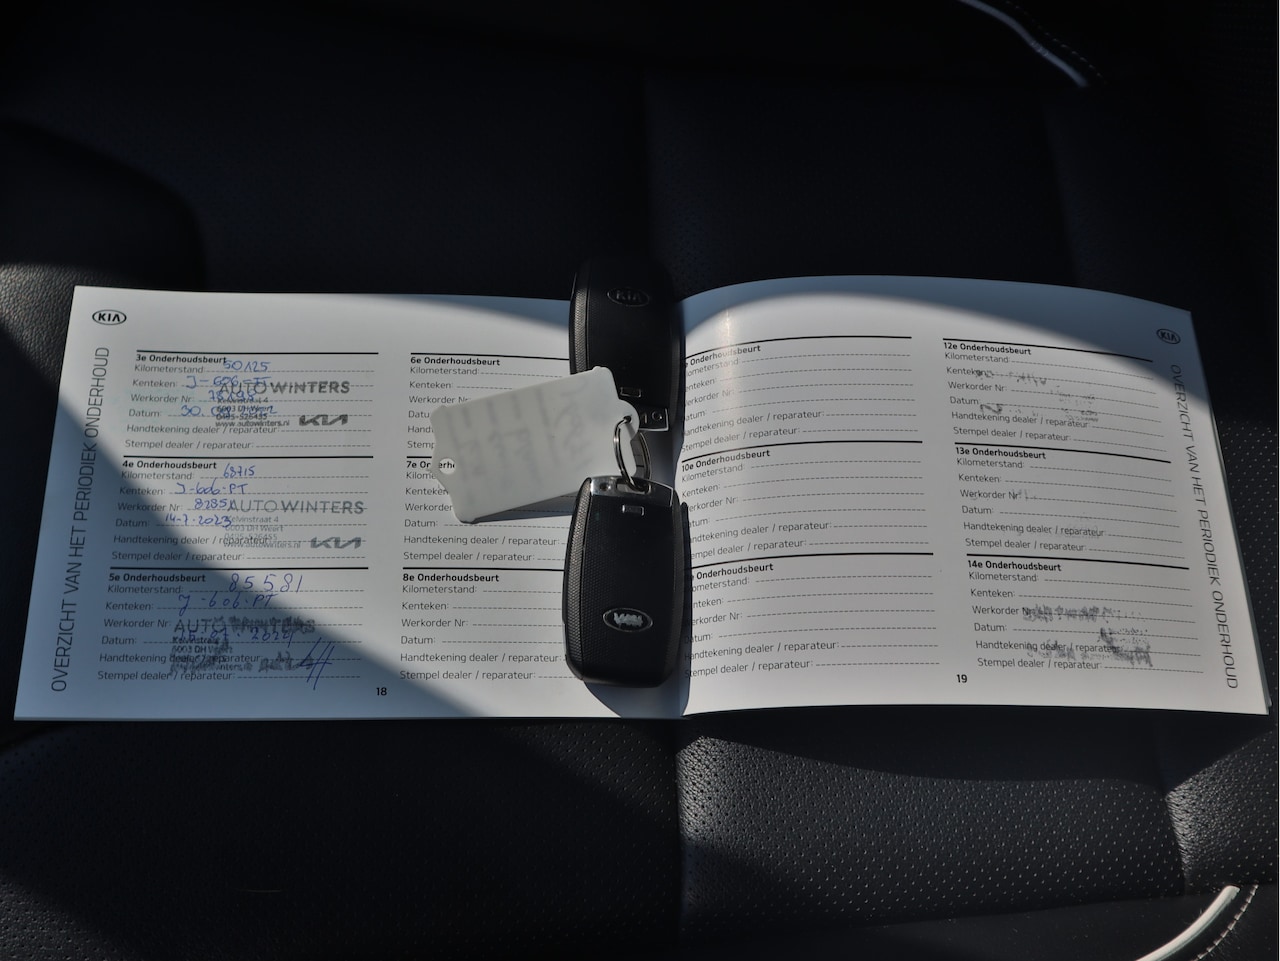 KIA
OVERZICHT VAN HET PERIODIEK ONDERHOUD
3e Onderhoudsbeurt
Kilometerstand: 50125
Kenteken: J-606-PT
AUTO WINTERS
Werkorder Nr:
Kelvinstraat 4
6003 DH Weert
Datum: 30.
0495-526455
www.autowinters.nl
KIA
Handtekening dealer / reparateur:
Stempel dealer / reparateur:
4e Onderhoudsbeurt
Kilometerstand: 68715
Kenteken: J-606-PT
Werkorder Nr:
AUTO WINTERS
Kelvinstraat 4
6003 DH Weert
Datum: 14-7-2023
0495-526455
www.autowinters.nl
KIA
Handtekening dealer / reparateur:
Stempel dealer / reparateur:
5e Onderhoudsbeurt
Kilometerstand: 85581
Kenteken: J-606-PT
Werkorder Nr:
AUTO WINTERS
Kelvinstraat
6003 DH Weert
Datum: 2024
Handtekening dealer / reparateur:
Stempel dealer / reparateur:
6e Onderhoudsbeurt
Kilometerstand:
Kenteken:
Werkorder
Datum:
Handtekening
Stempel
7e
Kilometerstand:
Kenteken:
Werkorder
Datum:
Handtekening dealer / reparateur:
Stempel dealer / reparateur:
8e Onderhoudsbeurt
Kilometerstand:
Kenteken:
Werkorder Nr:
Datum:
Handtekening dealer / reparateur:
Stempel dealer / reparateur:
18
KIA
KIA
Onderhoudsbeurt
Kilometerstand:
Kenteken:
Werkorder Nr:
Datum:
Handtekening dealer / reparateur:
Stempel dealer / reparateur:
10e Onderhoudsbeurt
Kilometerstand:
Kenteken:
Werkorder Nr:
Datum:
Handtekening dealer / reparateur:
Stempel dealer / reparateur:
Onderhoudsbeurt
Kilometerstand:
Kenteken:
Werkorder Nr:
Datum:
Handtekening dealer / reparateur:
Stempel dealer / reparateur:
12e Onderhoudsbeurt
Kilometerstand:
Kenteken:
Werkorder Nr:
Datum:
Handtekening dealer / reparateur:
Stempel dealer / reparateur:
13e Onderhoudsbeurt
Kilometerstand:
Kenteken:
Werkorder Nr:
Datum:
Handtekening dealer / reparateur:
Stempel dealer / reparateur:
14e Onderhoudsbeurt
Kilometerstand:
Kenteken:
Werkorder Nr:
Datum:
Handtekening dealer / reparateur:
Stempel dealer / reparateur:
19
KIA
OVERZICHT VAN HET PERIODIEK ONDERHOUD